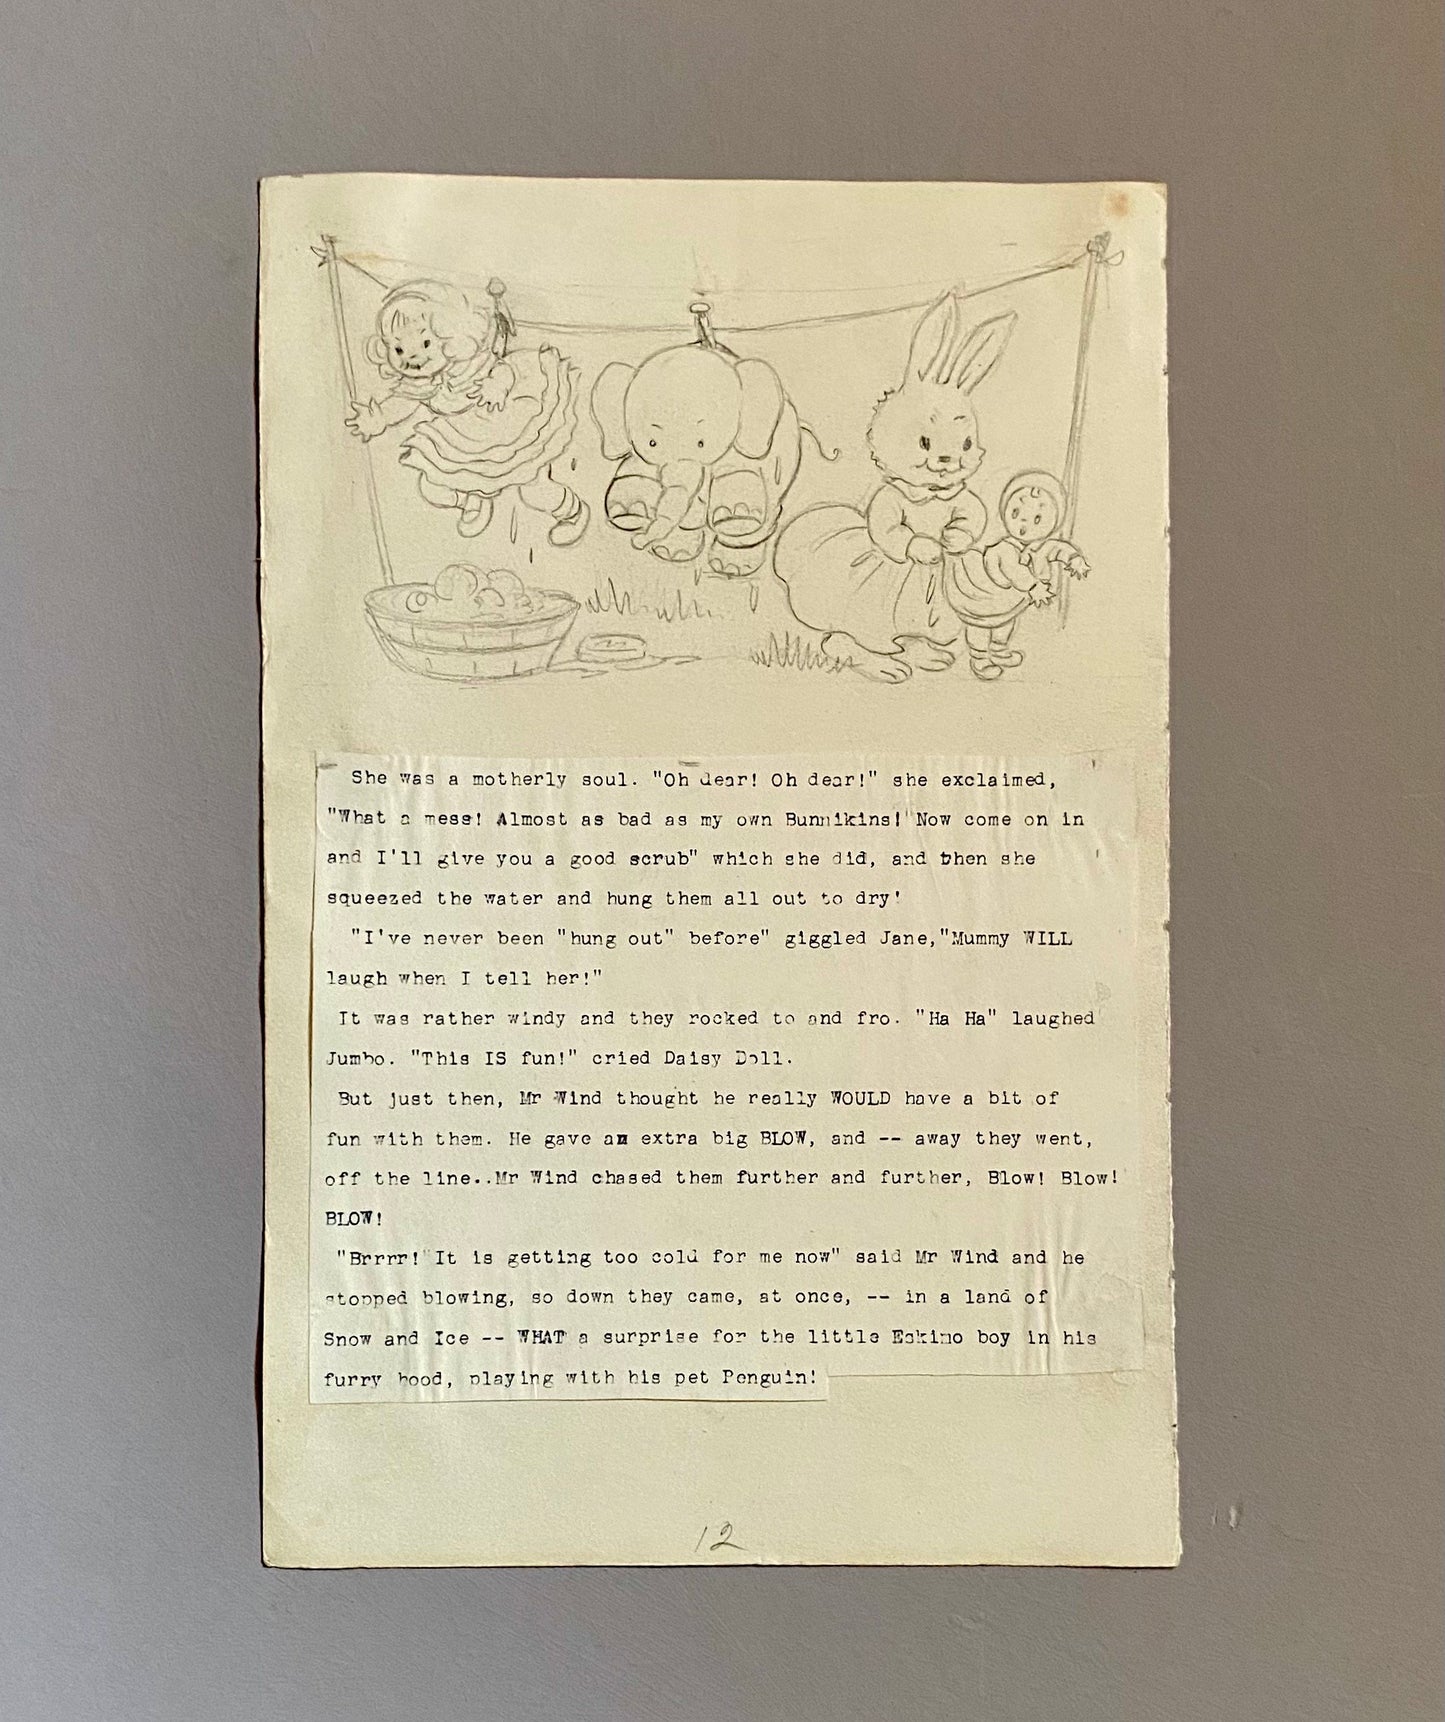 She was a motherly soul. "Oh dear! Oh dear!" she exclaimed,
"What a mess! Almost as bad as my own Bunnikins!"Now come on in
and I'll give you a good scrub" which she did, and then she
squeezed the water and hung them all out to dry!
"I've never been "hung out" before" giggled Jane,"Mummy WILL
laugh when I tell her!"
It was rather windy and they rocked to and fro. "Ha Ha" laughed
Jumbo. "This IS fun!" cried Daisy Doll.
But just then, Mr Wind thought he really WOULD have a bit of
fun with them. He gave an extra big BLOW, and -- away they went,
off the line..Mr Wind chased them further and further, Blow! Blow!
BLOW!
"Brrrr!"It is getting too cold for me now" said Mr Wind and he
stopped blowing, so down they came, at once, -- in a land of
Snow and Ice -- WHAT a surprise for the little Eskimo boy in his
furry hood, playing with his pet Penguin!
12